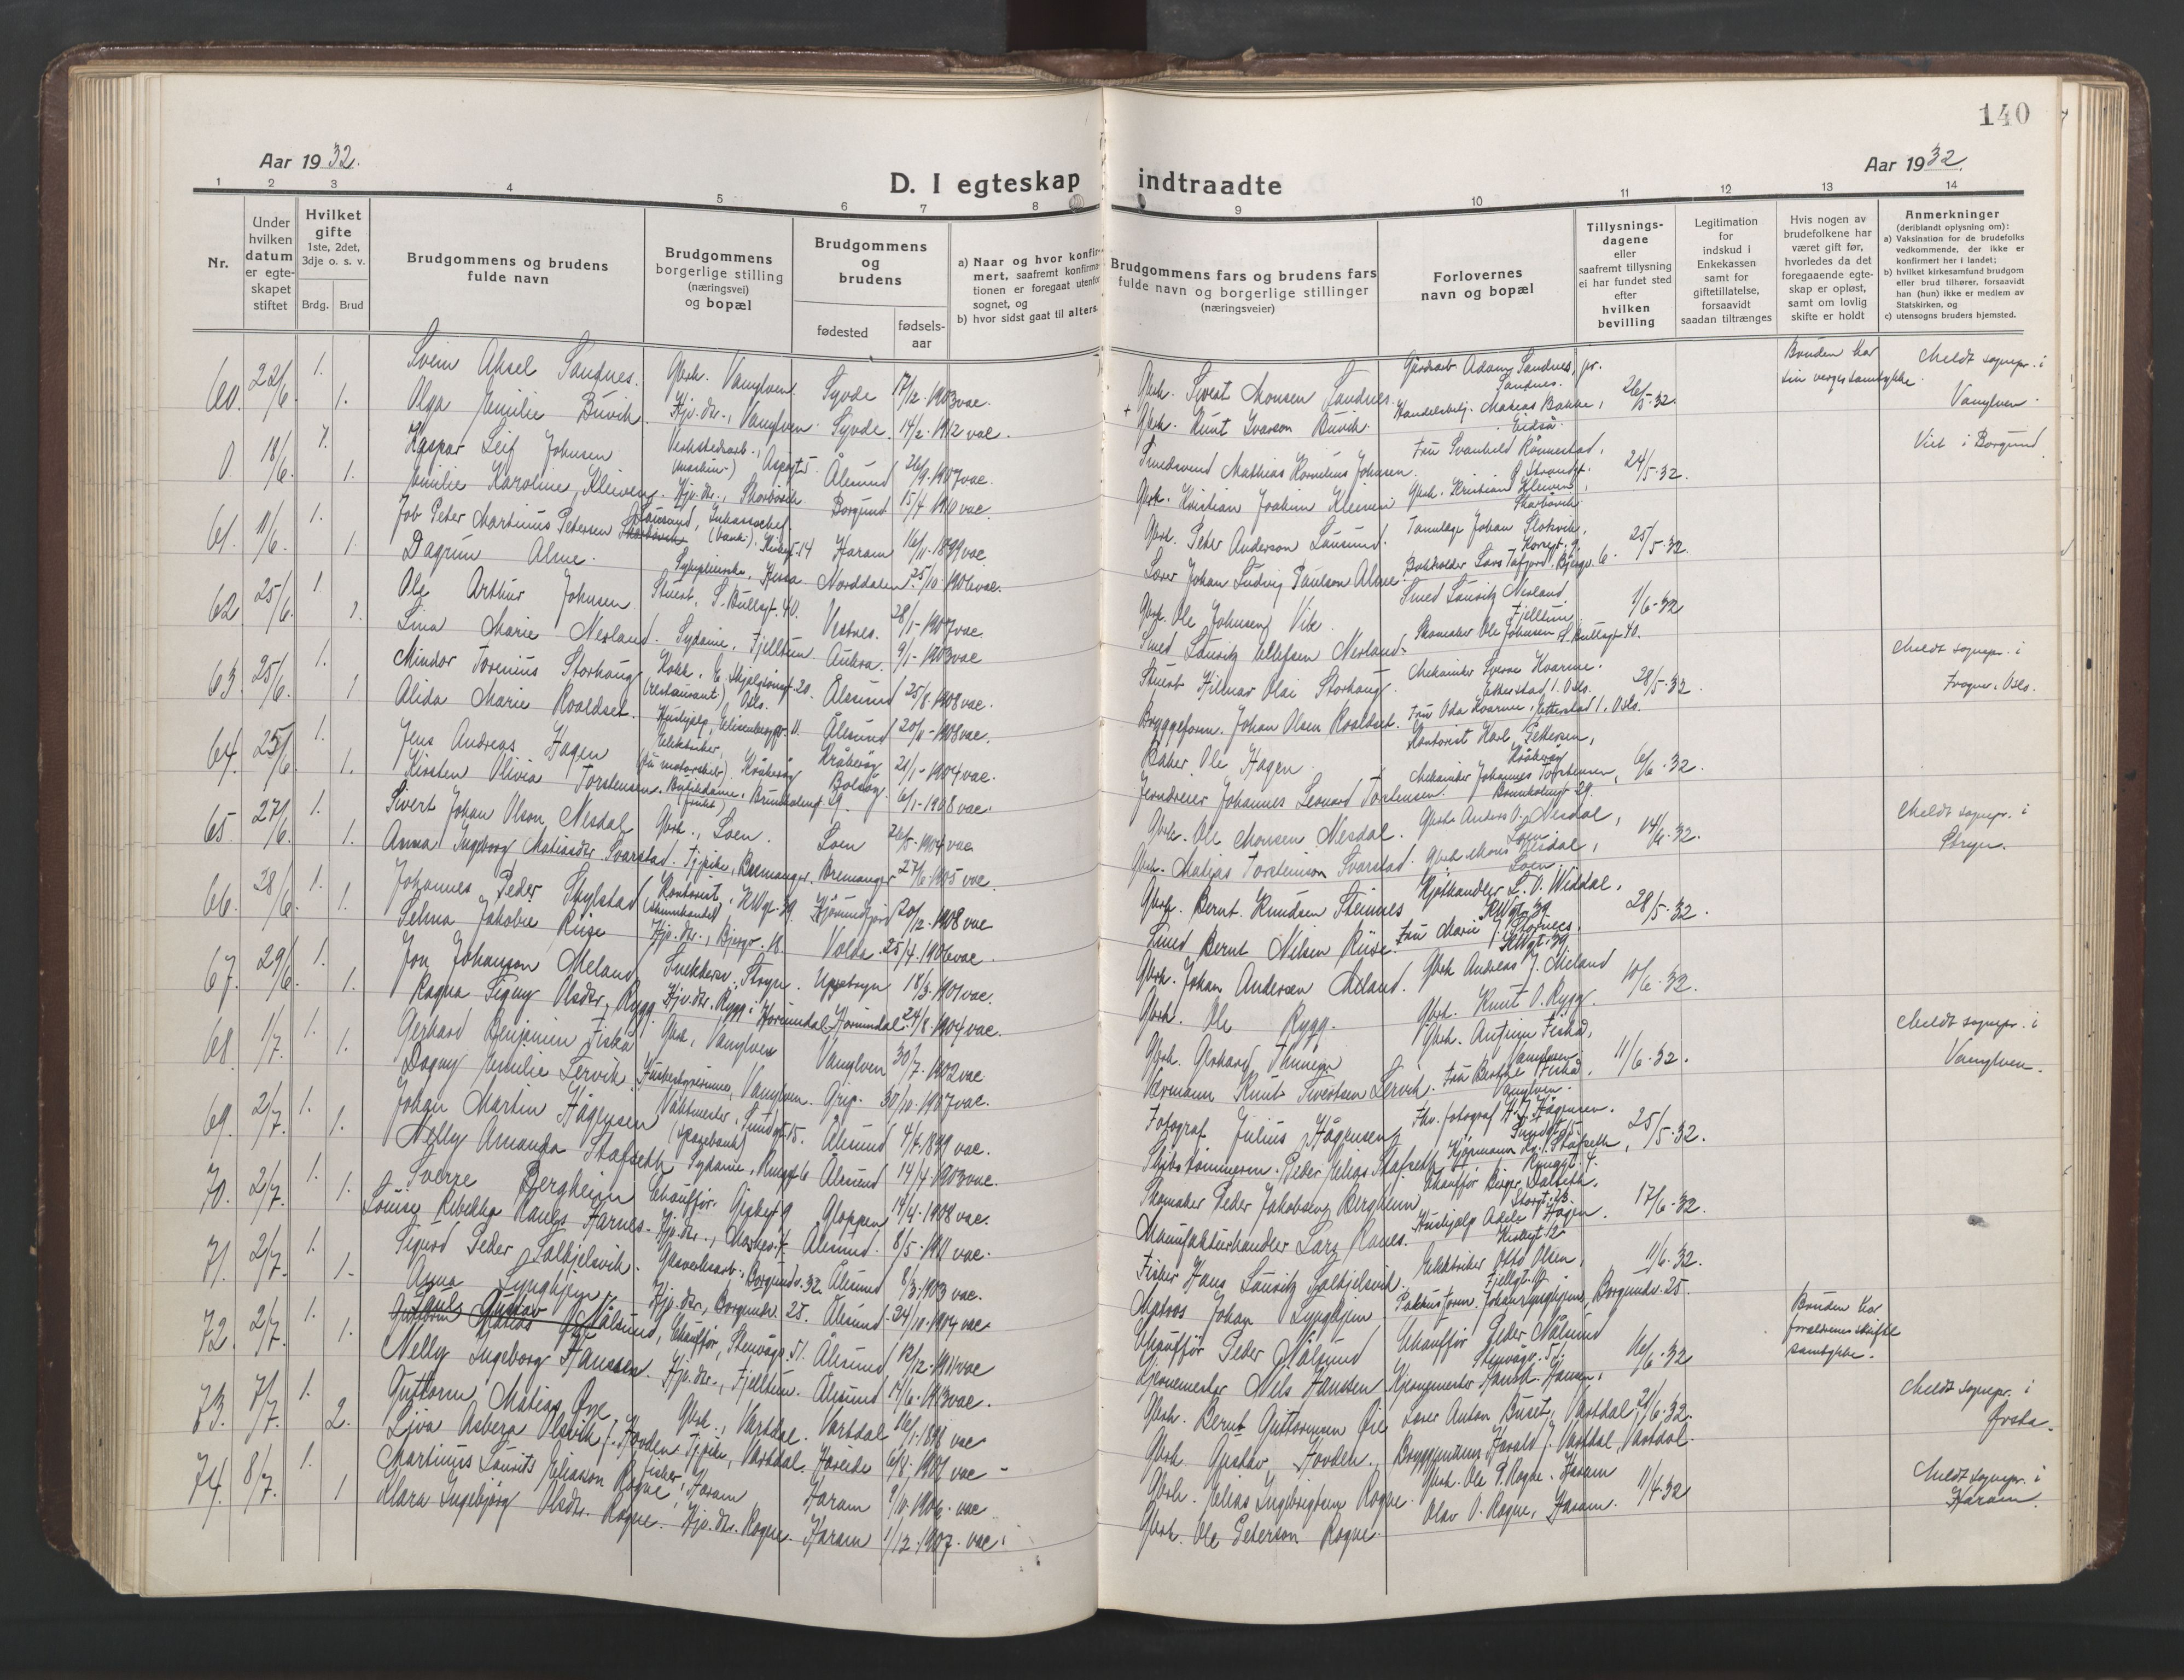 140
Aar 1932.
Aar 1932.
D. I egteskap indtraadte
1 2 3 4 5 6 7 8 9 10 11 12 13 14
Nr.
Under hvilken datum er egte-skapet stiftet
Hvilket gifte 1ste, 2det, 3dje o. s. v.
Brdg. Brud
Brudgommens og brudens fulde navn
Brudgommens borgerlige stilling (næringsvei) og bopæl
Brudgommens og brudens
fødested
fødsels-aar
a) Naar og hvor konfir-mert, saafremt konfirma-tionen er foregaat utenfor sognet, og
b) hvor sidst gaat til alters.
Brudgommens fars og brudens fars fulde navn og borgerlige stillinger (næringsveier)
Forlovernes navn og bopæl
Tillysnings-dagene eller saafremt tillysning ei har fundet sted efter hvilken bevilling
Legitimation for indskud i Enkekassen samt for giftetillatelse, forsaavidt saadan tiltrænges
Hvis nogen av brudefolkene har været gift før, hvorledes da det foregaaende egte-skap er opløst, samt om lovlig skifte er holdt
Anmerkninger (deriblandt oplysning om):
a) Vaksination for de brudefolks vedkommende, der ikke er konfirmert her i landet;
b) hvilket kirkesamfund brudgom eller brud tilhører, forsaavidt han (hun) ikke er medlem av Statskirken, og
c) utensogns bruders hjemsted.
60. 22/6 1. Svein Aksel Sandnes. Gbrk. Vanylven. Syvde 17/12-1903 vac. Gbrk. Sivert Monsen Sandnes. Gårdsarb. Adam Sandnes, Sandnes. 26/5-32. Bruden har sin verges samtykke. Meldt sognepr. i Vanylven.
1. Olga Emilie Buvik. Hjv. dtr., Vanylven. Syvde. 14/2-1912 vac. Gbrk. Knut Ivarson Buvik. Handelsbetj. Matias Bakke, Eidså.
0. 18/6. 1. Kaspar Leif Johnsen Verkstedarb., (maskin) Aspøgt 5. Ålesund 26/9-1907 vac. Smedsvend Mathias Kornelius Johnsen. Fru Svanhild Rønnestad, Ø. Strandgt. 24/5-32. Viet i Borgund
1. Emilie Karoline Kleiven. Hjv. dtr., Skarbøvik. Borgund 15/4 1910 vac. Gbrk. Kristian Joakim Kleiven Gbrk. Kristian Kleiven, Skarbøvik
61. 11/6. 1. Job Peter Martinus Petersen Lausund, Inkassochef. (bank). Kirkegt. 14 Haram 16/11-1899 vac. Gbrk. Peter Anderson Lausund. Tannlæge Johan Slokvik, Korsegt. 9. 25/5-32.
1. Dagrun Alme. Sykepleierske, Kissa. Norddalen. 25/10-1906 vac. Lærer Johan Ludvig Paulson Alme. Bokholder Lars Tafjord, Bjørgv. 6.
62. 25/6. 1. Ole Arthur Johnsen Stuert. S. Bullsgt. 40. Vestnes. 28/1-1907 vac. Gbrk. Ole Johnsen Vik. Smed Lauritz Nerland Fjelltun. 1/6-32
1. Lina Marie Nerland. Sydame, Fjelltun. Aukra. 9/1-1903 vac Smed Lauritz Ellefsen Nerland. Skomaker Ole Johnsen S. Bullsgt. 40.
63. 25/6. 1. Mindor Torenius Storhaug Kokk, E. Skjalgsonsgt. 20. (restaurant) Oslo. Ålesund 25/8-1908 vac. Stuert Hilmar Olai Storhaug. Mekaniker Sverre Kvarme. Etterstad 1. Oslo. 28/5-32. Meldt sognepr. i Frogner, Oslo.
1 Alida Marie Roaldset. Hushjelp, Eilenbergv. 11. Ålesund 20/11-1908 vac. Bryggeform. Johan Olsen Roaldset. Fru Oda Kvarme, Etterstad 1. Oslo.
64. 25/6 1. Jens Andreas Hagen Elektriker, (på motorskib). Kråkvåg Kråkvåg 21/1-1904 vac. Baker Ole Hagen. Kontorist Karl Pettersen, Kråkvåg 6/6-32.
1. Kirsten Olivia Torstensen. Butikdame, Brunholmgt. 29. (frukt) Bolsøy. 6/1-1908 vac. Jerndreier Johannes Leonard Torstensen. Mekaniker Johannes Torstensen, Brunholmgt. 29.
65 27/6. 1. Sivert Johan Olson Nesdal Gbrk., Loen. Loen 26/5-1904 vac. Gbrk. Ole Monsen Nesdal. Gbrk. Anders O. Nesdal, Loen 14/6-32. Meldt sognepr. i Stryn.
1. Anna Ingeborg Matiasdtr. Svarstad. Tjpike, Bremanger. Bremanger 27/6-1905 vac. Gbrk. Matias Torsteinson Svarstad. Gbrk. Mons Nesdal, Loen.
66. 28/6. 1. Johannes Peder Skylstad Kontorist, KWgt. 39. Hjørundfjord 20/12-1908 vac Gbrk. Bernt Knudsen Steinnes Kjøthandler L. O. Widdal, KWgt. 39. 28/5-32.
1. Selma Jakobie Riise Hjv. dtr., Bjørgv. 18. Volda. 25/4-1906 vac. Smed Bernt Nilsen Riise. Fru Marie J. Storenes. KWgt. 39.
67. 29/6. 1. Jon Johanson Meland Snekkersv. Stryn. Uppstryn 18/3-1901 vac. Gbrk. Johan Andersen Meland. Gbrk. Andreas J. Meland 10/6-32.
1. Ragna Signy Olsdtr. Rygg. Hjv. dtr. Rygg i Hornindal. Hornindal. 24/8-1904 vac. Gbrk. Ole Rygg. Gbrk. Knut O. Rygg.
68. 1/7. 1. Gerhard Benjamin Fiskå Gbrk, Vanylven Vanylven 30/7-1902 vac Gbrk. Gerhard Fiskå, Vanylven. 11/6-32. Meldt sognepr. i Vanylven.
1. Dagny Emilie Lervik. Husbestyrerinne, Vanylven. Grip. 30/10-1907 vac. Værmann Knut Sivertsen Lervik. Fru Berthe Fiskå, Vanylven.
69. 2/7. 1. Johan Martin Hågensen Vaktmester, Sundgt. 15. (sparebank) Ålesund 4/4-1899 vac. Fotograf Julius Hågensen Fhv. fotograf H. J. Hågensen. Sundgt. 15. 25/5-32.
1. Nelly Amanda Stafseth Sydame, Ringgt. 6 Ålesund 14/4 1903 vac. Skibstømmerm. Peder Elias Stafseth. Kjøpmann Stafseth, Ringgt. 4.
70. 2/7. 1. Sverre Bergheim Chauffør. Giskegt. 9 Gloppen 14/4-1908 vac. Skomaker Peder Jakobsen Bergheim Chauffør Birger Dalseth, Storgt. 23. 17/6-32.
1. Louise Rebekka Ranes Farnes. Hjv. dtr., Ålesund. 8/5-1911 vac. Manufakturhandler Lars Ranes. Hushjelp Adele Hagen. Kirkegt. 12
71. 2/7. 1. Sigurd Peder Solkjelsvik. Gasverksarb., Borgundv. 32. Ålesund 8/3-1903 vac. Fisker Hans Lauritz Solkjelsvik. Elektriker Otto Olsen, Fjellgt. 11/6-32.
1. Anna Lyngheim. Hjv. dtr., Borgundv. 25. Ålesund. 24/10-1904 vac. Matros Johan Lyngheim Pakkusform. Johan Lyngheim, Borgundv. 25.
72. 2/7. 1. Paul Gustav Nålsund, Chauffør, Steinvågv. 51. Ålesund 12/12-1911 vac Chauffør Peder Nålsund Chauffør Peder Nålsund Steinvågv. 51. 16/6-32 Bruden har foreldrenes skriftl. samtykke.
1. Nelly Ingeborg Hanssen. Hjv. dtr., Fjelltun. Ålesund 14/6-1913 vac. Nils Hanssen
73. 7/7. 1. Guttorm Matias Øye Gbrk., Vartdal. Vartdal 16/1-1898 vac Gbrk. Bernt Guttormsen Øie Lærer Anton Buset, Vartdal 21/6-32. Meldt sognepr. i Ørsta.
2. Liva Asberg Olsvik f. Hovden. Tjpike, Vartdal. Hareide 6/8-1901 vac Gbrk Gustav Hovden. Byggmann Harald J. Vartdal, Vartdal.
74. 8/7. 1. Martinus Laurits Eliasson Rogne fisker, Haram Haram 9/11-1906. vac Gbrk. Elias Ingebrigtsen Rogne. Gbrk. Ole P. Rogne. Haram 11/4-32 Meldt sognepr. i Haram.
1 Klara Ingebjørg Olsdtr. Rogne. Hjv. dtr. Rogne. Haram 1/12-1907. vac. Gbrk. Ole Peterson Rogne. Olav O. Rogne, Haram.